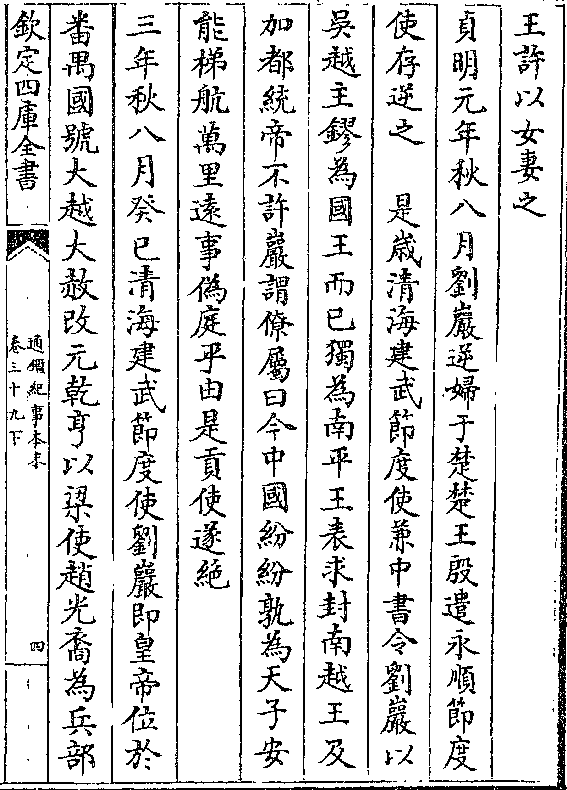 王許以女妻之
貞明元年秋八月劉巖逆婦于楚楚王殷遣永順節度
使存逆之　是歲清海建武節度使兼中書令劉巖以
吳越主鏐為國王而已獨為南平王表求封南越王及
加都統帝不許巖謂僚屬曰今中國紛紛孰為天子安
能梯航萬里遠事偽庭乎由是貢使遂絕
三年秋八月癸巳清海建武節度使劉巖即皇帝位於
番禺國號大越大赦改元乾亨以梁使趙光裔為兵部
欽定四庫全書
通鑑紀事本末
卷三十九下
四